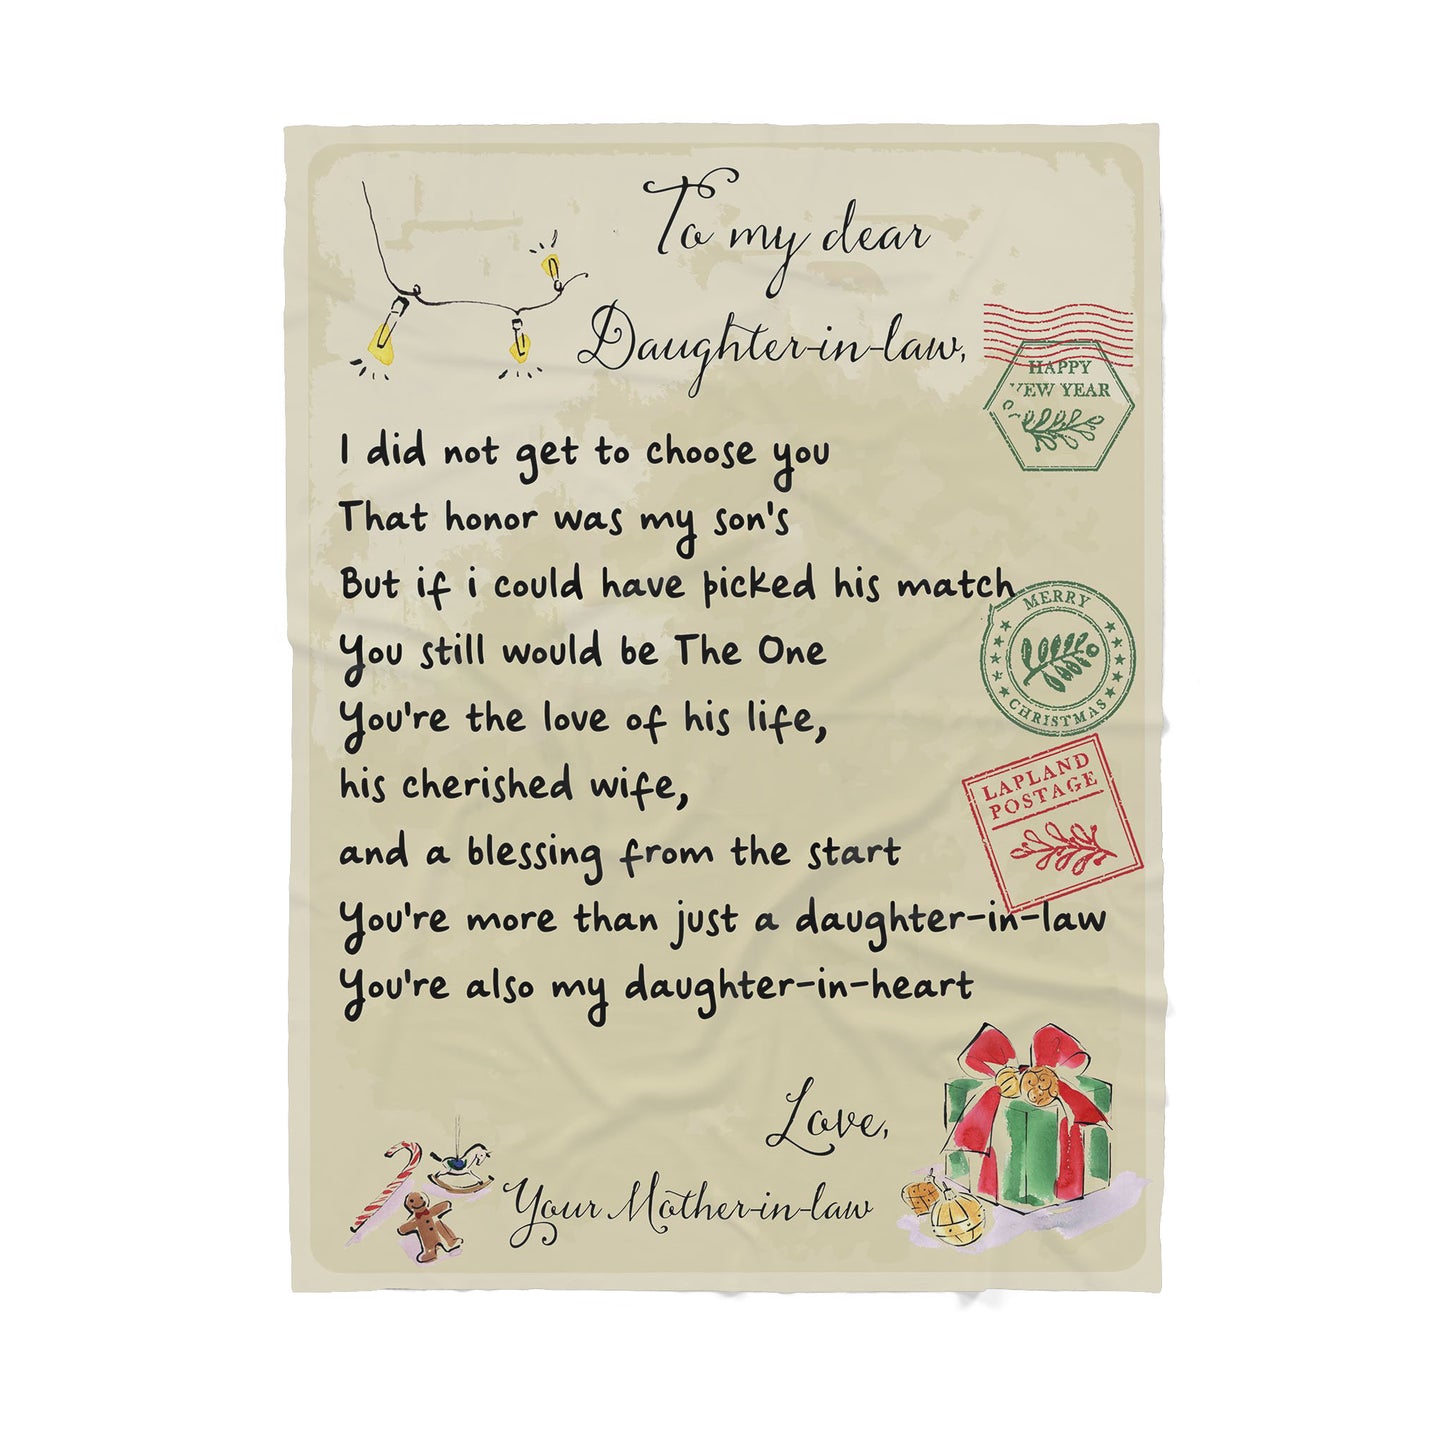 To my dear
Daughter-in-law,
HAPPY
NEW YEAR
I did not get to choose you
That honor was my son's
But if i could have picked his match
MERRY
CHRISTMAS
You still would be The One
You're the love of his life,
his cherished wife,
LAPLAND
POSTAGE
and a blessing from the start
You're more than just a daughter-in-law
You're also my daughter-in-heart
Love,
Your Mother-in-law